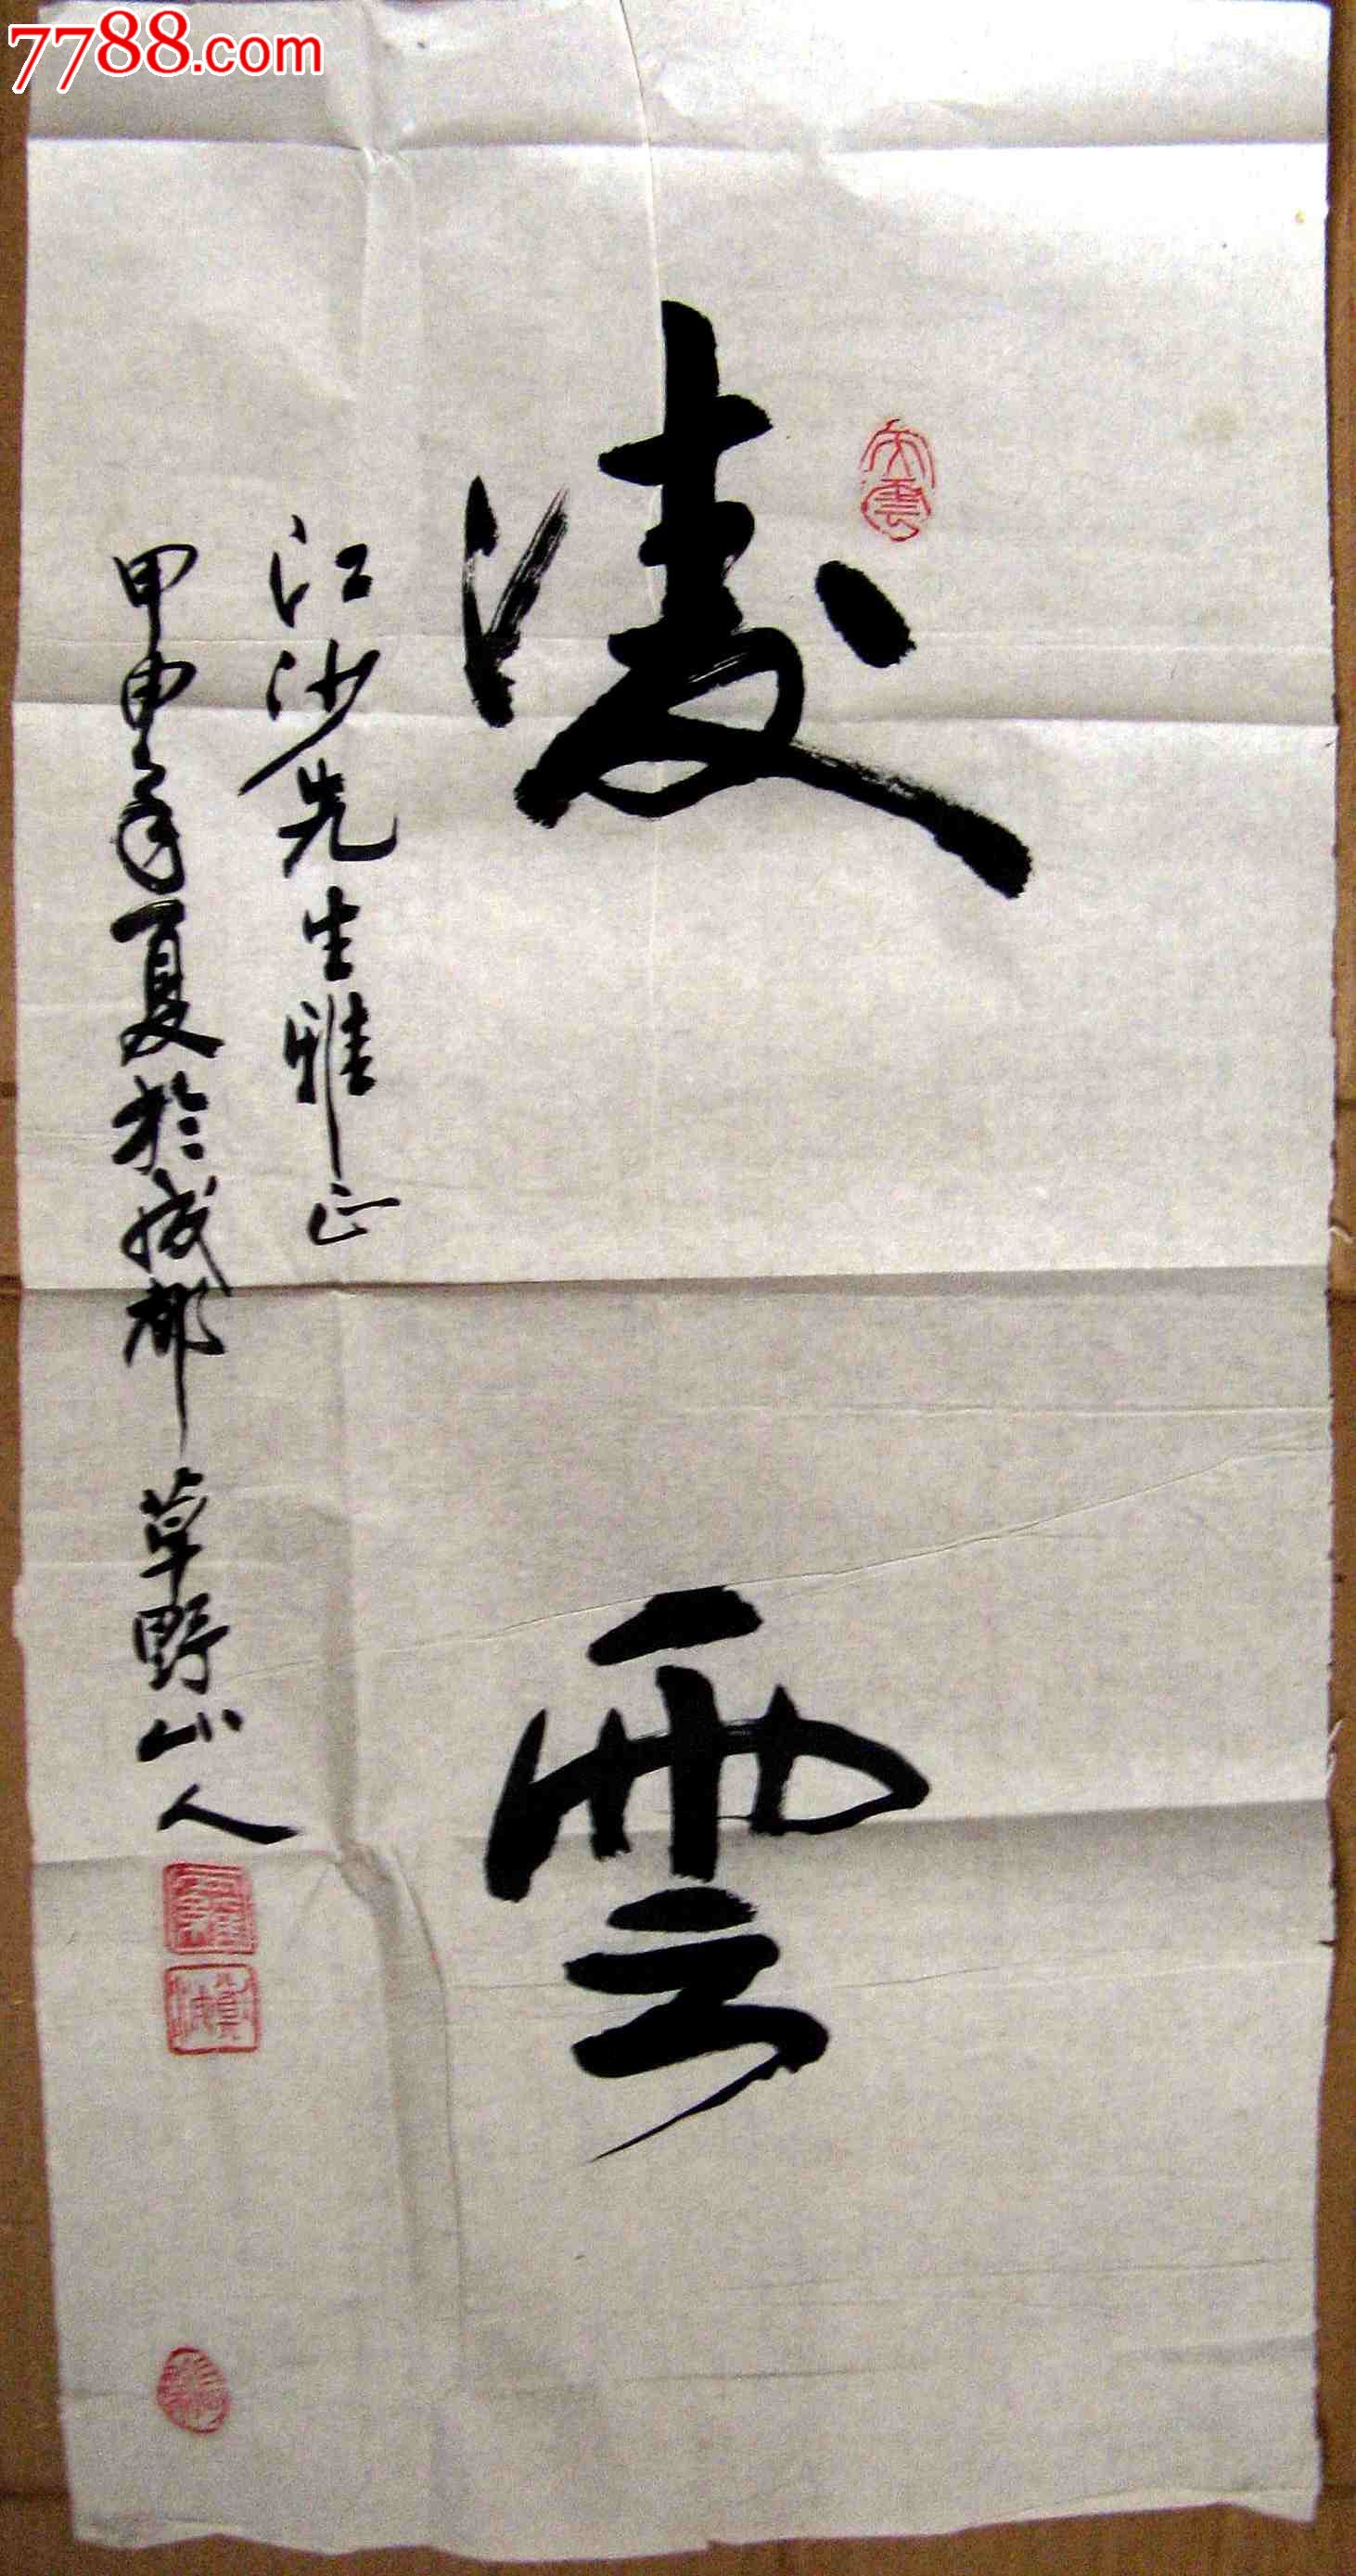 7788.com
凌雲
江沙先生雅正
甲申年夏於成都 草野山人